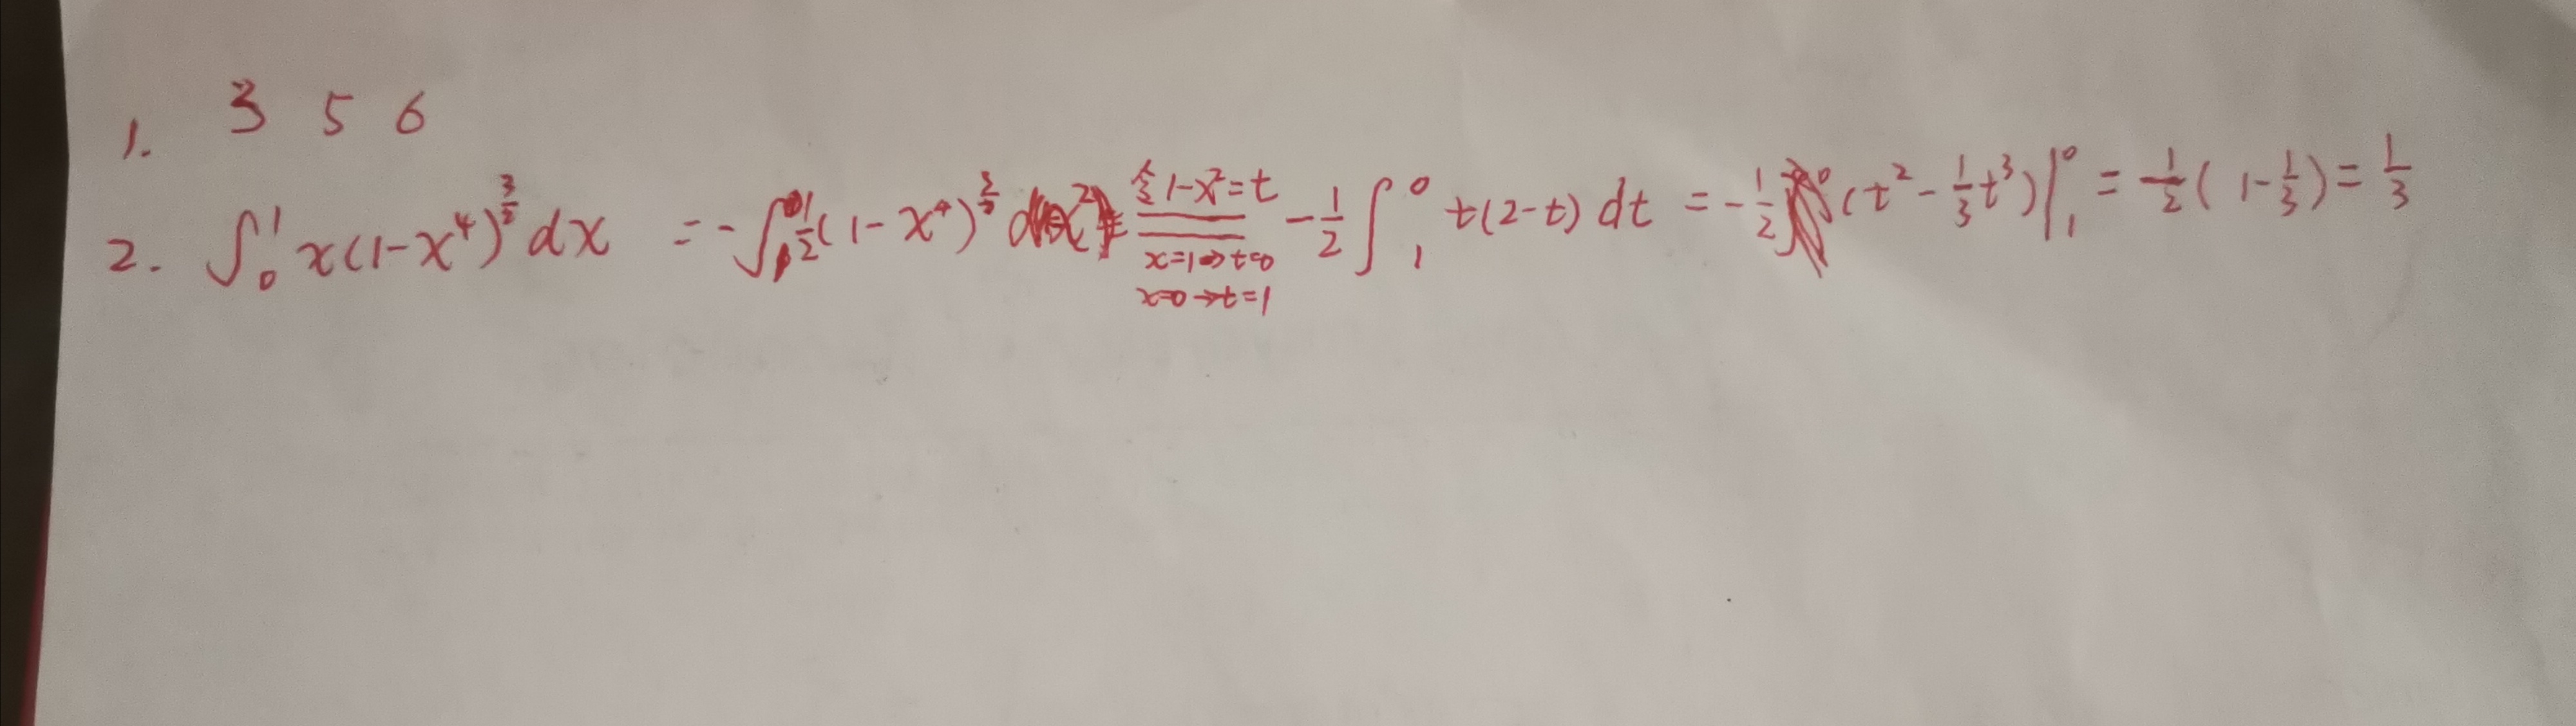 1. 3 5 6
2. ∫₀¹ x(1-x⁴)^{3/2} dx = -∫ 1/2 (1-x⁴)^{3/2} d x² = 令 1-x²=t x=1→t=0 x=0→t=1 -1/2 ∫₁⁰ t(2-t) dt = -1/2 (t² - 1/3 t³)|₁⁰ = 1/2 (1 - 1/3) = 1/3